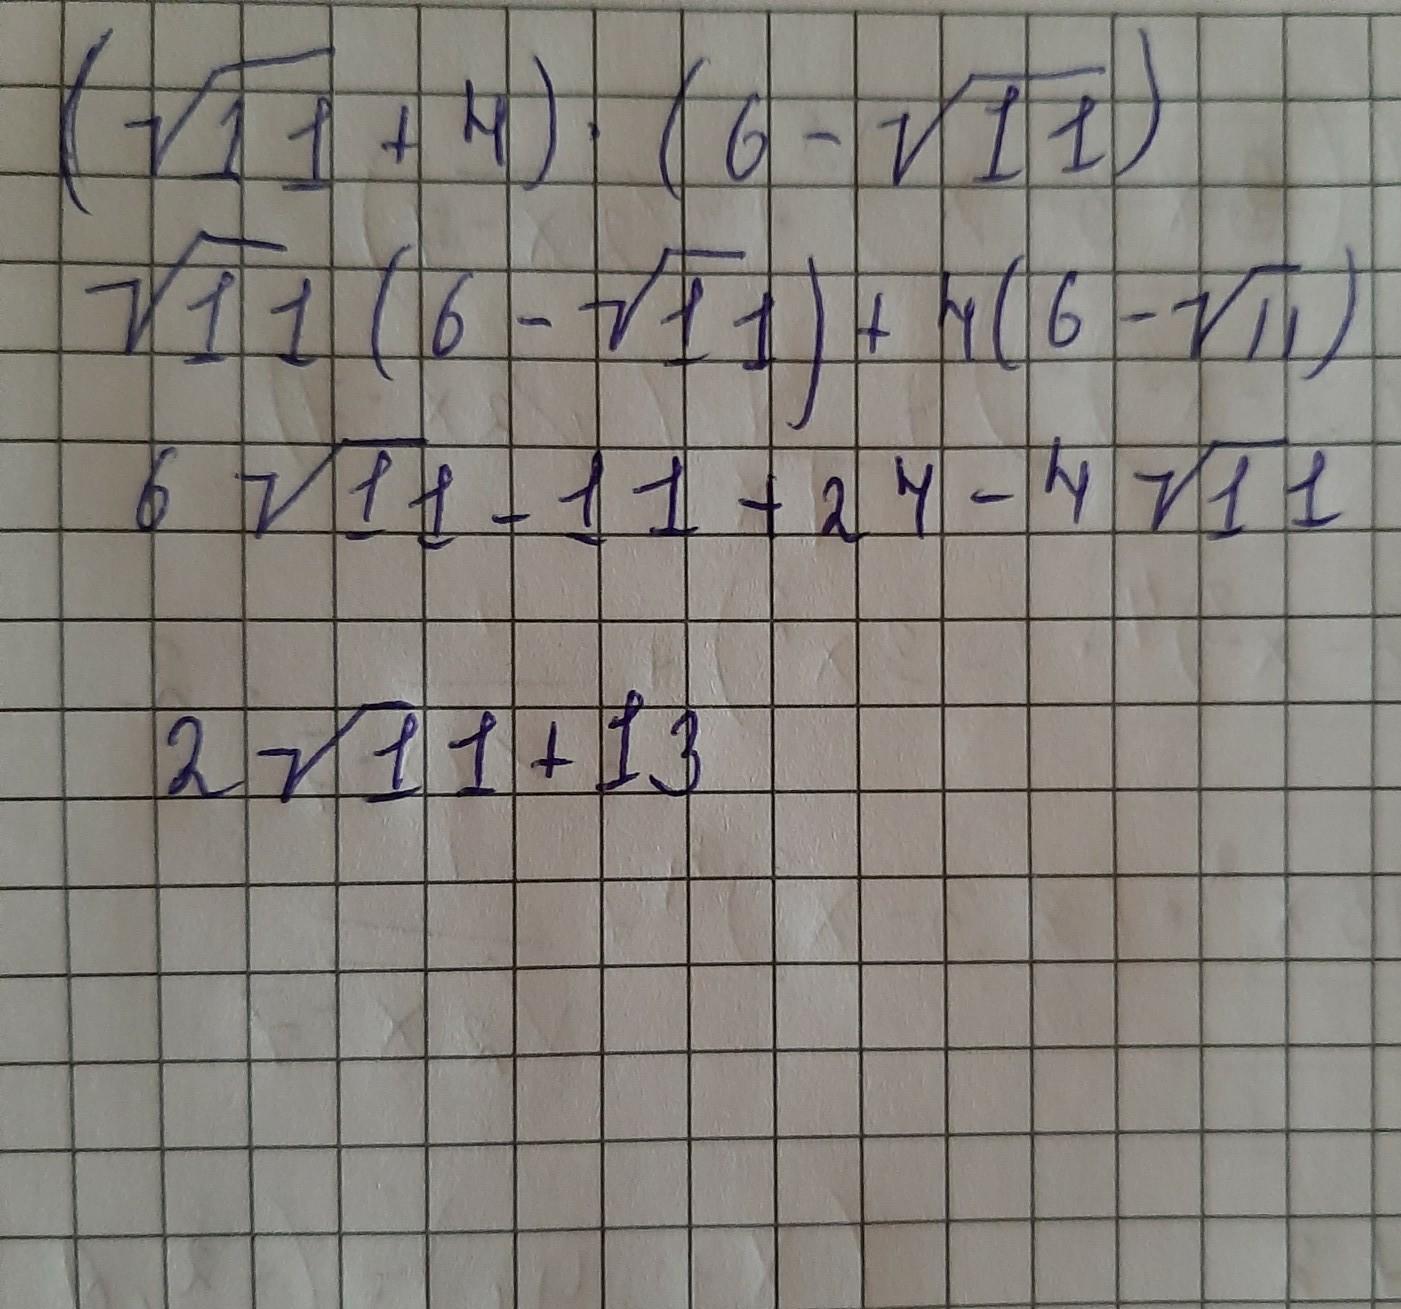 (√11 + 4) · (6 - √11)
√11 (6 - √11) + 4(6 - √11)
6 √11 - 11 + 24 - 4 √11
2 √11 + 13